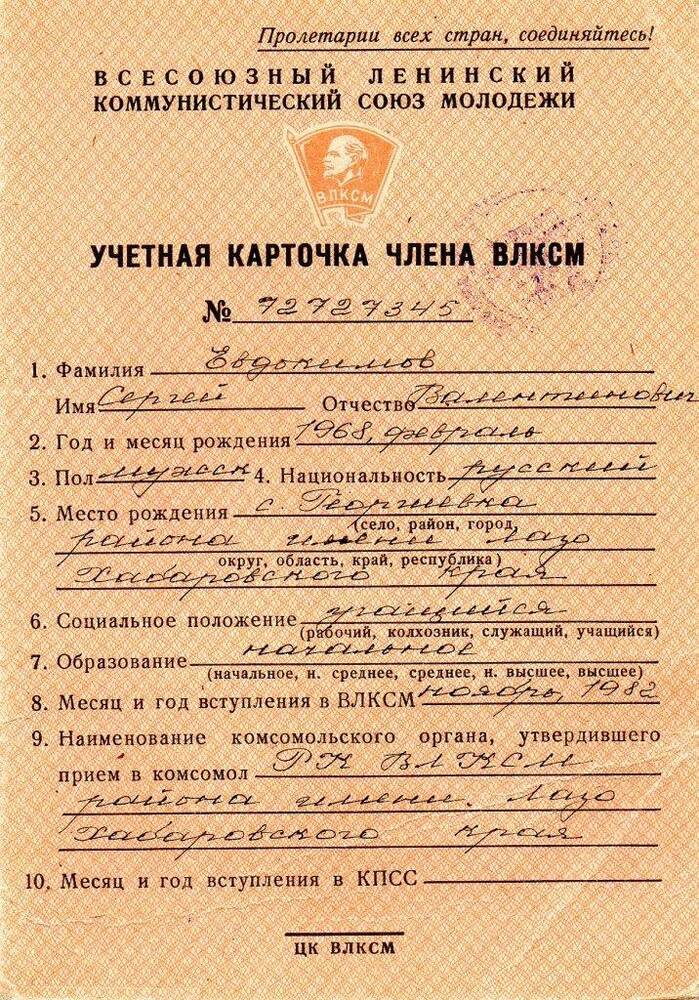 Пролетарии всех стран, соединяйтесь!
ВСЕСОЮЗНЫЙ ЛЕНИНСКИЙ
КОММУНИСТИЧЕСКИЙ СОЮЗ МОЛОДЕЖИ
ВЛКСМ
УЧЕТНАЯ КАРТОЧКА ЧЛЕНА ВЛКСМ
№ 72727345
1. Фамилия Евдокимов
Имя Сергей Отчество Валентинович
2. Год и месяц рождения 1968, февраль
3. Пол мужск 4. Национальность русский
5. Место рождения с. Георгиевка
(село, район, город,
района имени Лазо
округ, область, край, республика)
Хабаровского края
6. Социальное положение учащийся
(рабочий, колхозник, служащий, учащийся)
7. Образование начальное
(начальное, н. среднее, среднее, н. высшее, высшее)
8. Месяц и год вступления в ВЛКСМ ноябрь, 1982
9. Наименование комсомольского органа, утвердившего
прием в комсомол РК ВЛКСМ
района имени Лазо
Хабаровского края
10. Месяц и год вступления в КПСС
ЦК ВЛКСМ